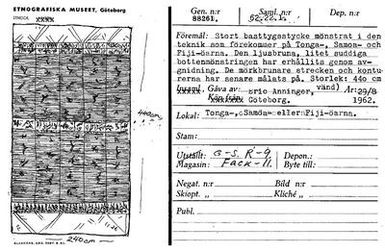 ETNOGRAFISKA MUSEET, Göteborg
440cm
240cm
Gen. n:r Saml. n:r Dep. n:r
88261. 52.22.1.
Föremål: Stort basttygsstycke mönstrat i den
teknik som förekommer på Tonga-, Samoa- och
Fiji-öarna. Den ljusbruna, litet suddiga
bottenmönstringen har erhållits genom av-
gnidning. De mörkbrunare strecken och kontu-
rerna har senare målats på. Storlek: 440 cm
Gåva av: Anninger, År: 29/8
Köp från Göteborg. 1962.
Lokal: Tonga-, Samoa- eller Fiji-öarna.
Stam:
Utställt: G-S. R-9 Depon.:
Magasin: Fack-11. Byte till:
Negat. n:r Bild n:r
Skiopt. » Kliché »
Publ.